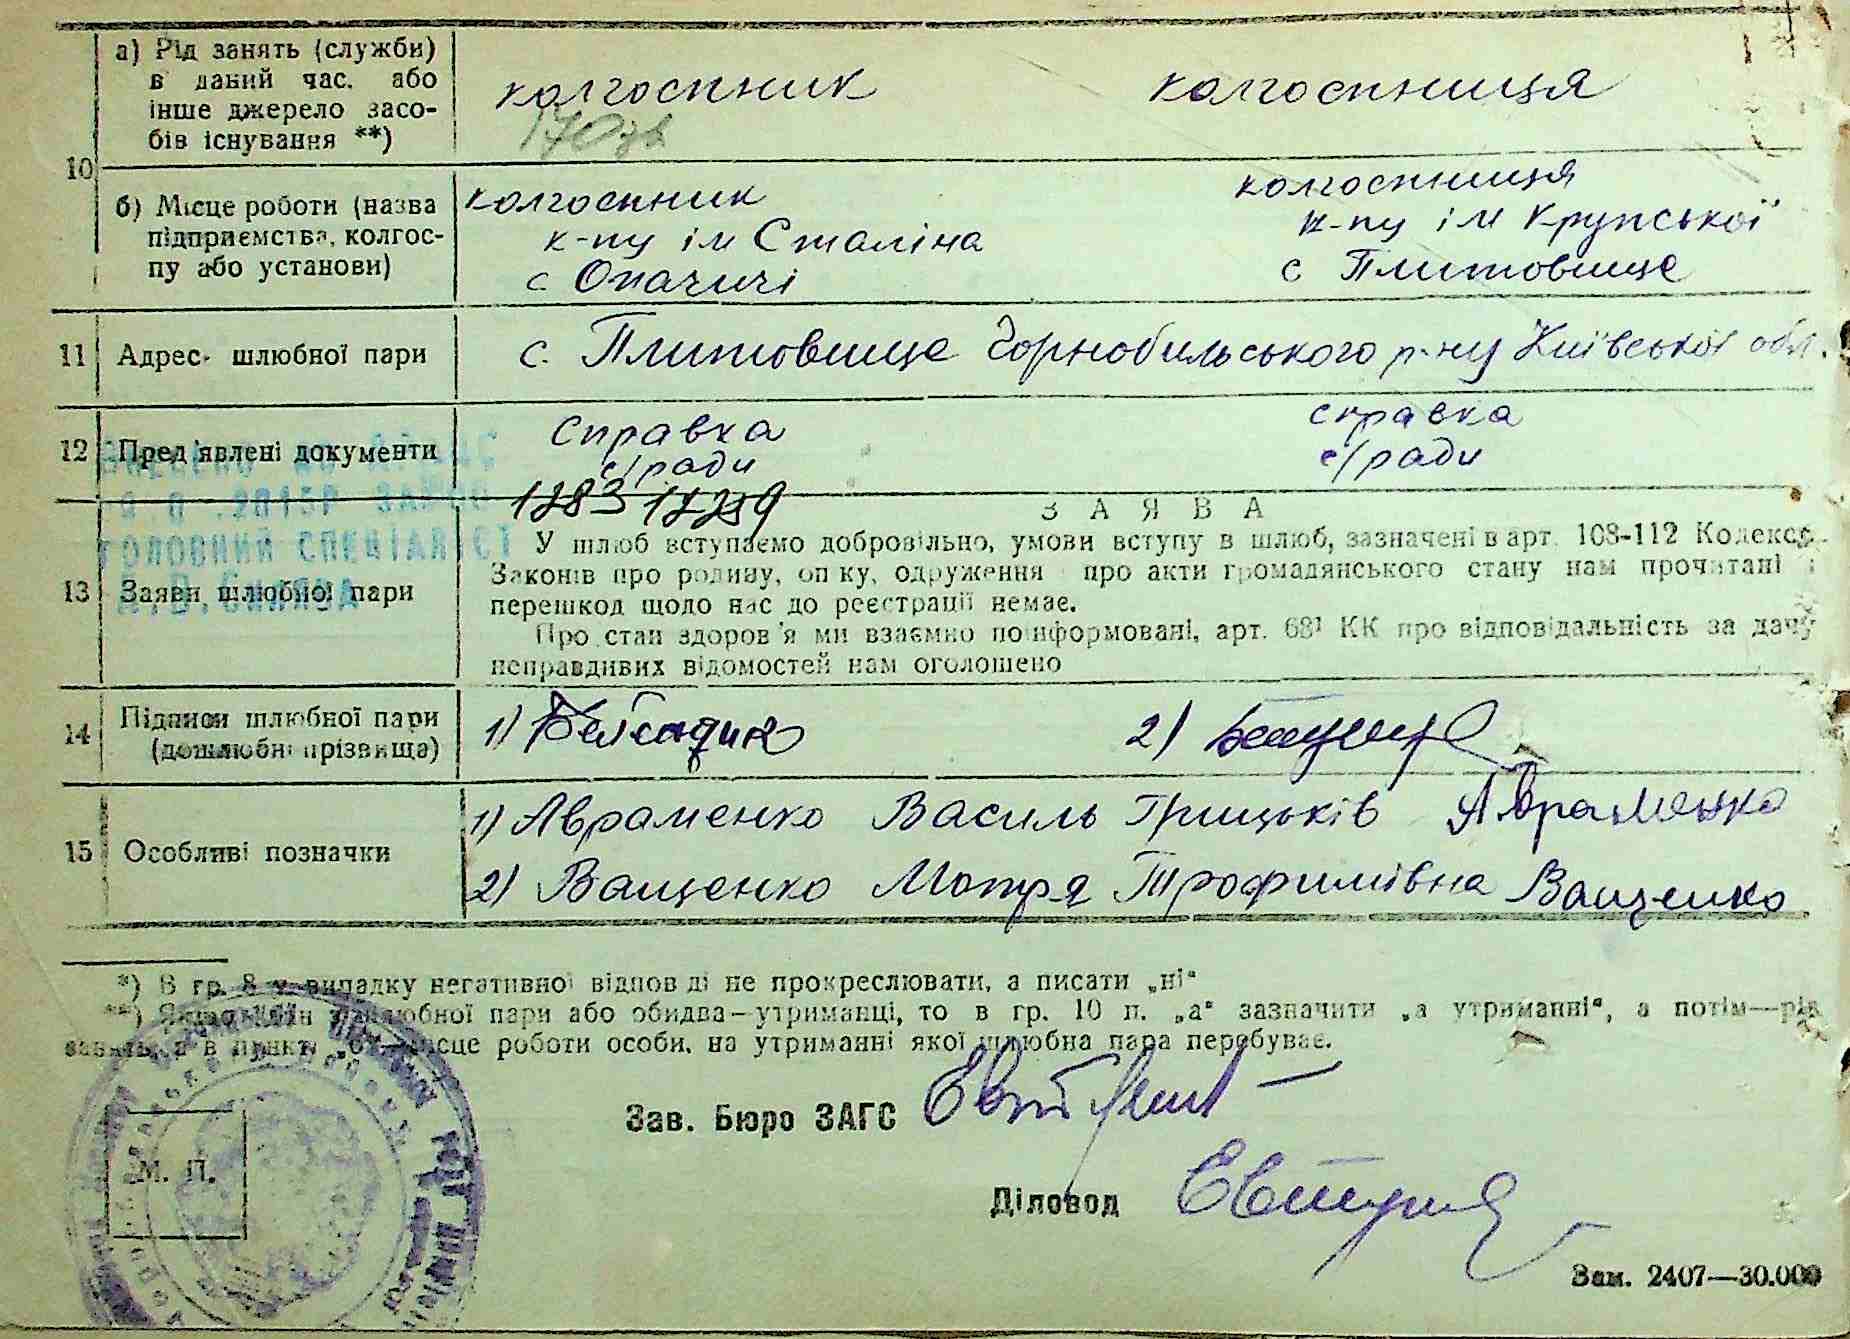 10
а) Рід занять (служби)
в даний час. або
інше джерело засо-
бів існування **)
колгоспник
колгоспниця
б) Місце роботи (назва
підприємства, колгос-
пу або установи)
колгоспник
к-пу ім Сталіна
с Опачичі
колгоспниця
к-пу ім Крупської
с Плитовище
11 Адрес шлюбної пари
с. Плитовище Чорнобильського р-ну Київської обл.
12 Пред'явлені документи
Справка
с/ради
справка
с/ради
ГОЛОВНИЙ СПЕЦІАЛІСТ
13 Заяви шлюбної пари
ЗАЯВА
У шлюб вступаємо добровільно, умови вступу в шлюб, зазначені в арт. 108-112 Кодекса
Законів про родину, опіку, одруження про акти громадянського стану нам прочитані і
перешкод щодо нас до реєстрації немає.
Про стан здоров'я ми взаємно поінформовані, арт. 68¹ КК про відповідальність за дачу
неправдивих відомостей нам оголошено
14 Підписи шлюбної пари
(дошлюбні прізвища)
1)
2)
15 Особливі позначки
1) Авраменко Василь Грицьків Авраменко
2) Ващенко Мотря Трофимівна Ващенко
*) В гр. 8 у випадку негативної відповіді не прокреслювати, а писати „ні“
**) Якщо один з шлюбної пари або обидва—утриманці, то в гр. 10 п. „а“ зазначити „а утриманні“, а потім—рід
занять, а в пункті „б“ місце роботи особи, на утриманні якої шлюбна пара перебуває.
Зав. Бюро ЗАГС
М. П.
Діловод
Зам. 2407—30.000